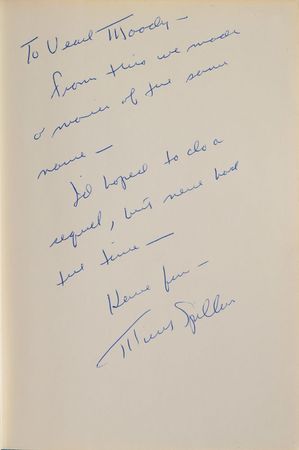 To Vearl Moody —
From this we made
a movie of the same
name —
I'd hoped to do a
sequel, but never had
the time —
Have fun —
Mickey Spillane